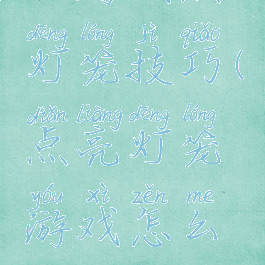 dēng lóng jì qiǎo
灯笼技巧(
diǎn liàng dēng lóng
点亮灯笼
yóu xì zěn me
游戏怎么